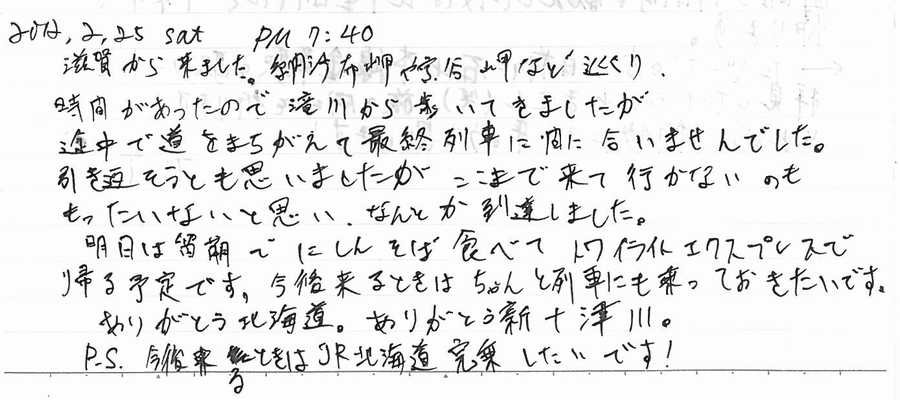 2012,2,25 sat PM 7:40
滋賀から来ました。納沙布岬や宗谷岬など巡り、
時間があったので滝川から歩いてきましたが
途中で道をまちがえて最終列車に間に合いませんでした。
引き返そうとも思いましたがここまで来て行かないのも
もったいないと思い、なんとか到達しました。
明日は留萌でにしんそば食べてトワイライトエクスプレスで
帰る予定です。今後来るときはちゃんと列車にも乗っておきたいです。
ありがとう北海道。ありがとう新十津川。
P.S. 今後来るときはJR北海道完乗したいです!